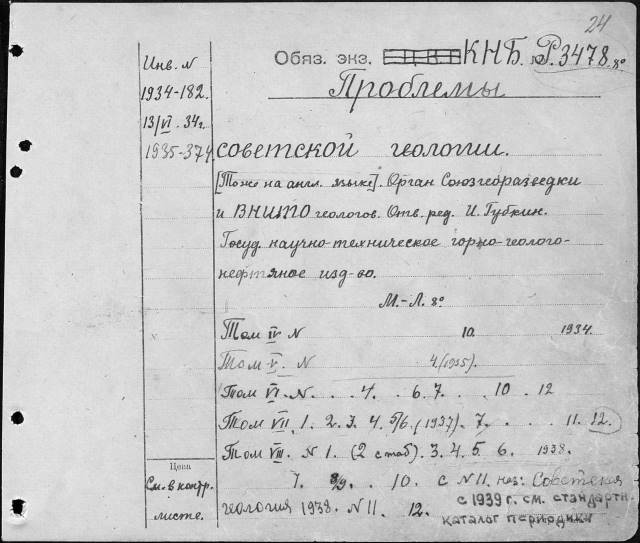 24
Обяз. экз. КНБ. № Р.3478. 8°
Проблемы
советской геологии.
[То же на англ. языке]. Орган Союзгеоразведки
и ВНИТО геологов. Отв. ред. И. Губкин.
Госуд. научно-техническое горно-геолого-
нефтяное изд-во.
М.-Л. 8°
Том IV N 10. 1934.
Том V. N 4. (1935).
Том VI. N. . . 4. . 6. 7. . . 10 . 12
Том VII. 1. 2. 3. 4. 5/6. (1937). 7. . . . 11. 12.
Том VIII. N 1. (2 с таб). 3. 4. 5. 6. 1938.
7. 8/9. . . 10. с N 11. наз: Советская
геология 1938. N 11. 12.
с 1939 г. см. стандартн.
каталог периодики
Инв. N
1934-182.
13/VI. 34 г.
1935-374
Цена
См. в контр.
листе.